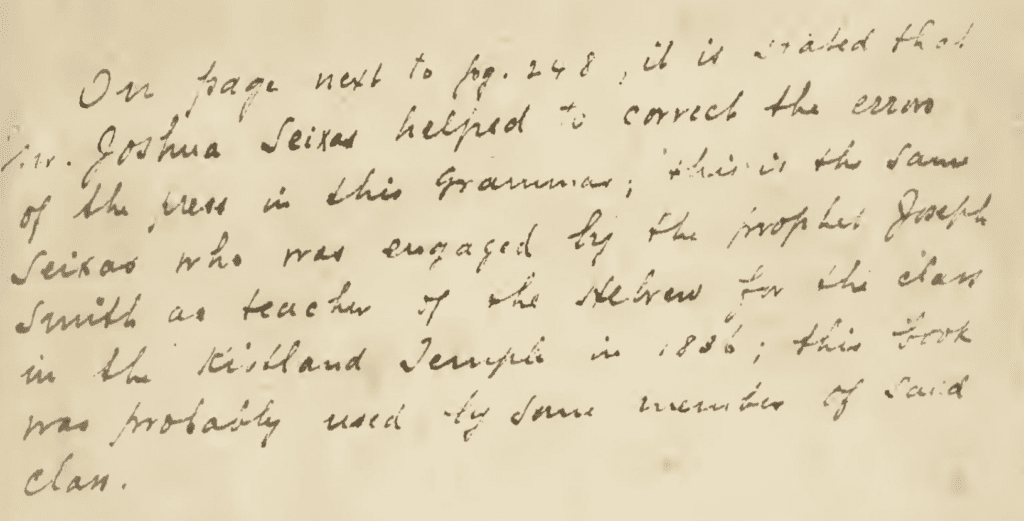 On page next to pg. 248, it is stated that
Mr. Joshua Seixas helped to correct the errors
of the press in this Grammar; this is the same
Seixas who was engaged by the prophet Joseph
Smith as teacher of the Hebrew for the class
in the Kirtland Temple in 1836; this book
was probably used by some member of said
class.